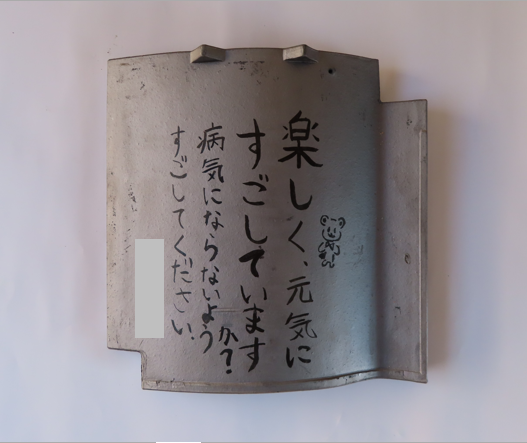 楽しく、元気に
すごしていますか?
病気にならないよう
すごしてください。